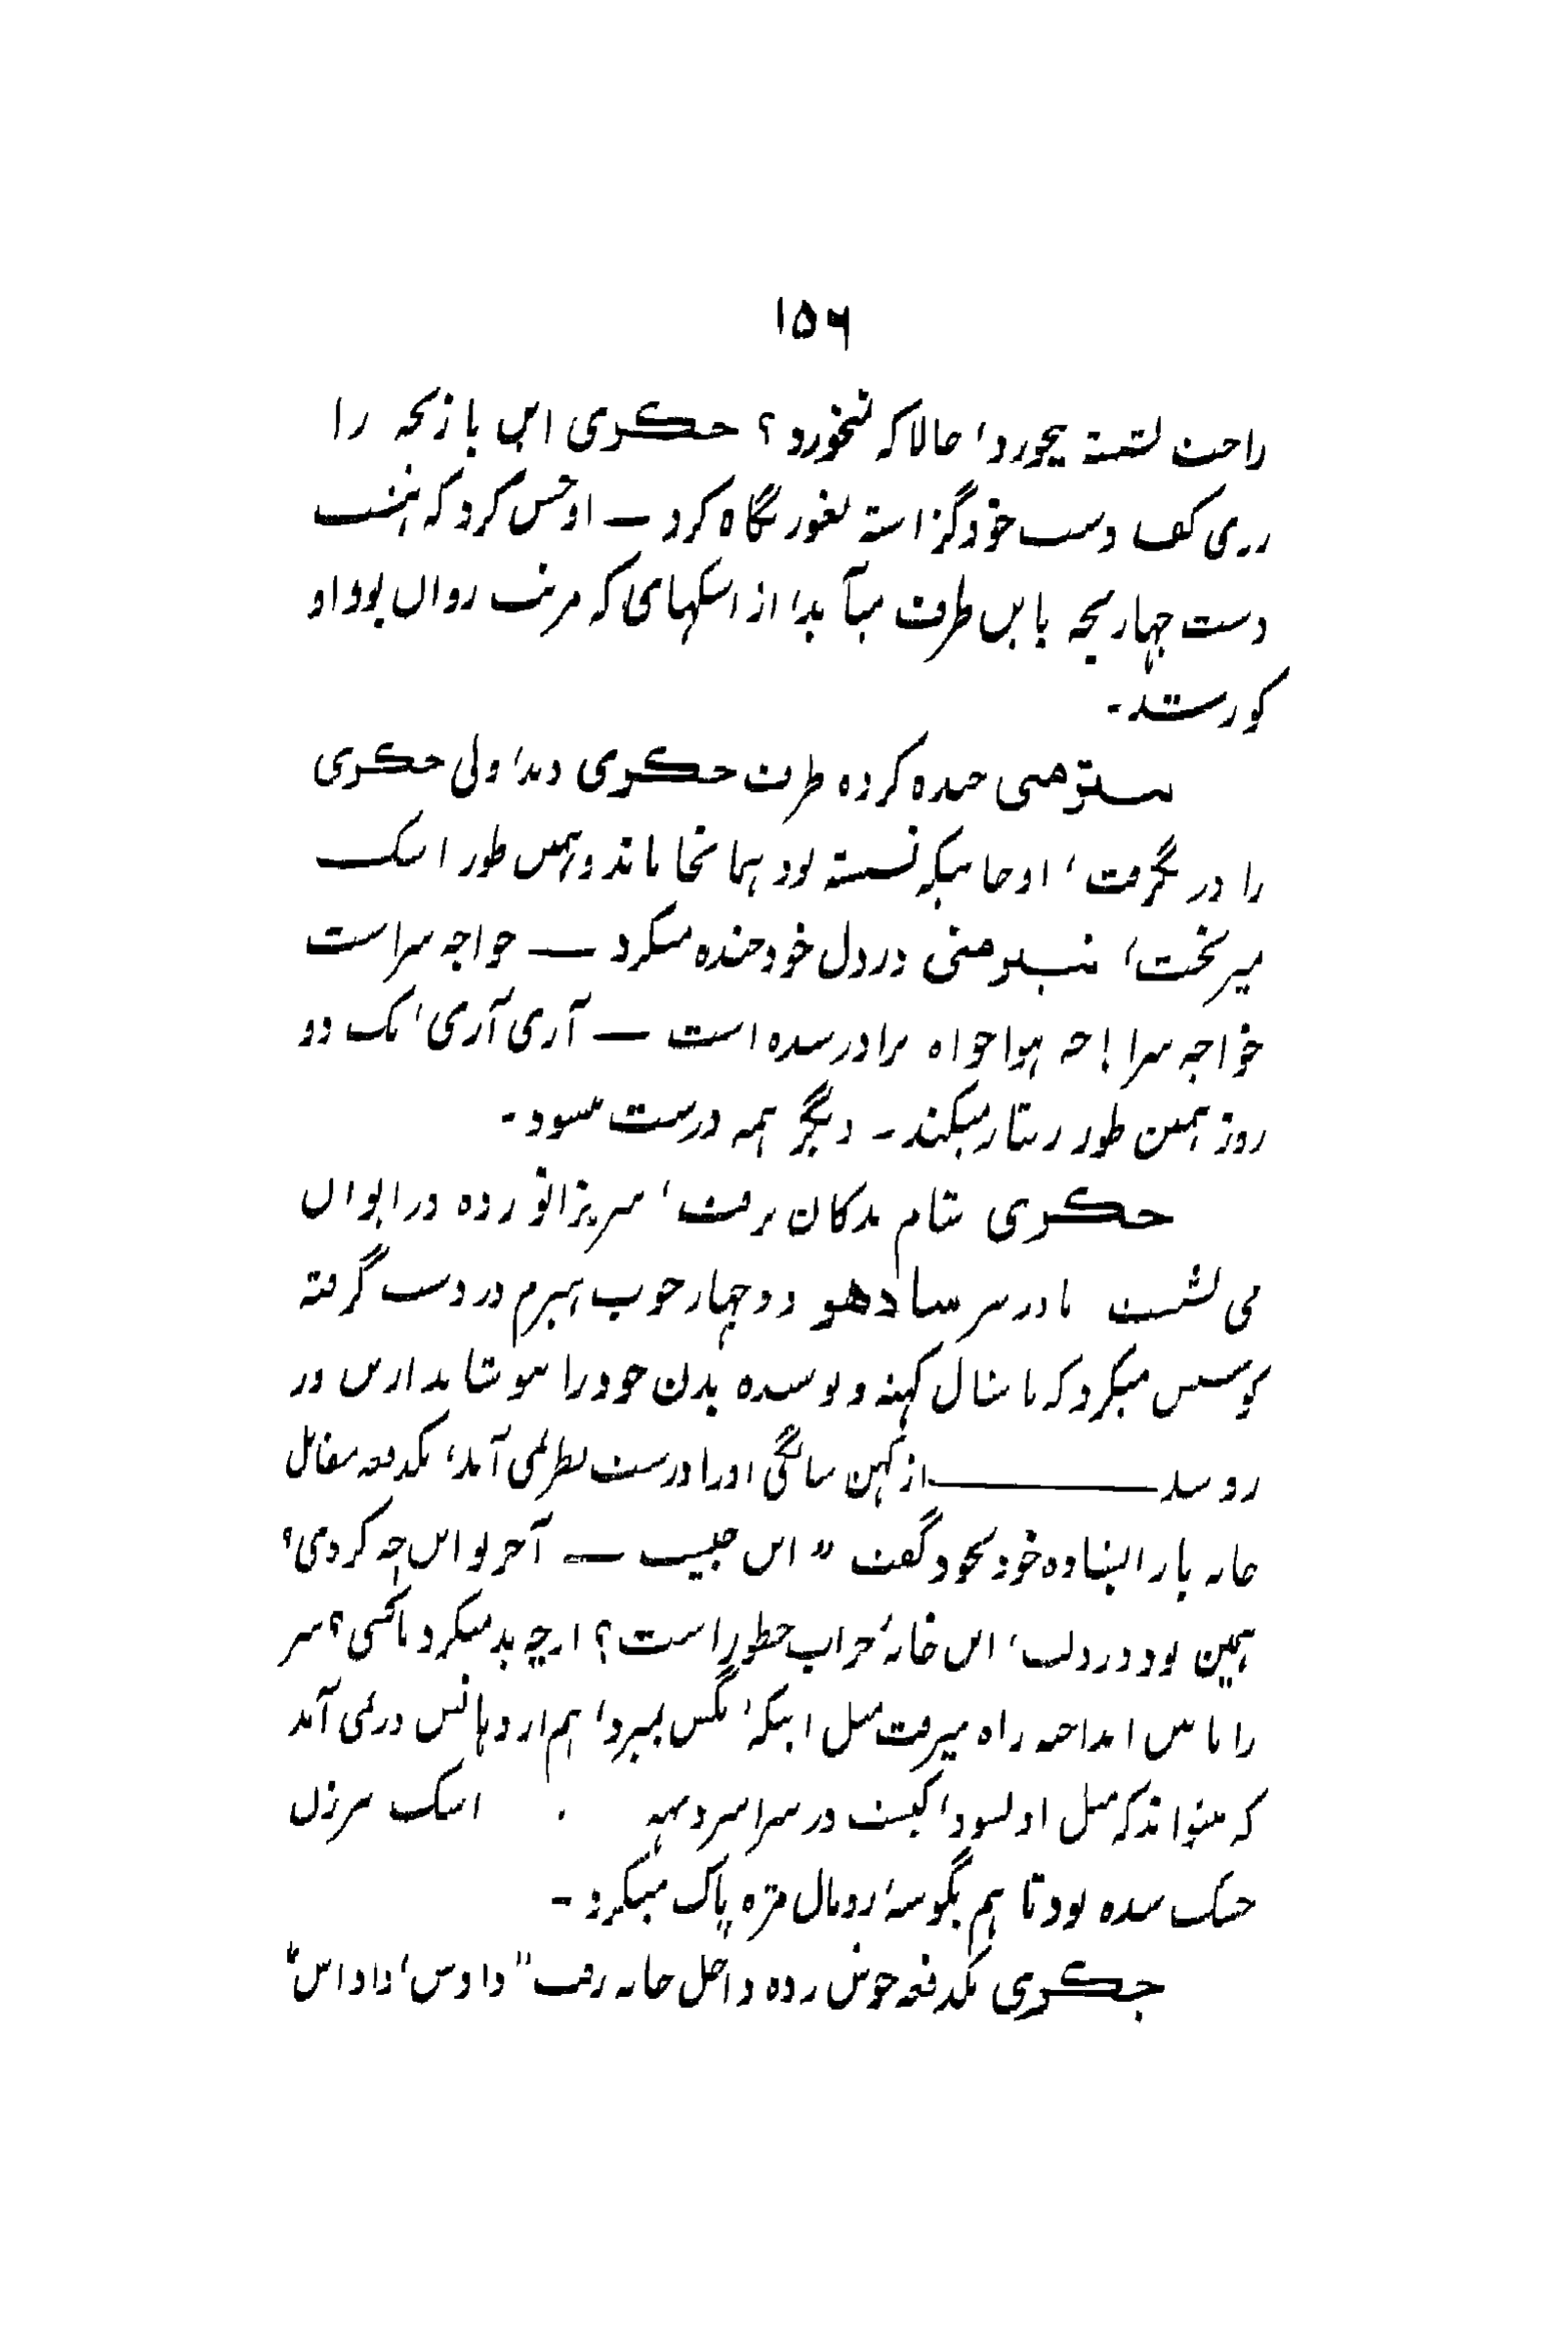 ۱۵۶
راحت نشسته بیخورد، حالا که نخورد؟ چکوری این بازیچه را
روی کف دست خود گزاشته بغور نگاه کرد ـ او حس کرد که هفت
دست چهار بچه باین طرف میآید، از اشکهای که مرتب روان بود او
کور شد۔
سنتوهی خنده کرده طرف چکوری دید، ولی چکوری
را در نگرفت، او جائیکه نشسته بود همانجا ماند و همین طور اشک
میریخت، سنتوهی در دل خود خنده میکرد ـ خواجه سراست
خواجه سرا! چه هوا خواه برادر شده است ـ آری آری، یک دو
روز همین طور رفتار میکند۔ دیگر همه درست میشود۔
چکوری شام بدکان نرفت، سر بزانو زده در ایوان
می نشست مادر سر سادهو دو چهار چوب هیزم در دست گرفته
کوشش میکرد که با شال کهنه و بوسیده بدن خود را بپوشاند از بس در
رو شد ـــــــ از کهن سالگی او را درست بنظر نمی آمد، یکدفعه مقابل
خانه باز ایستاده خود بخود گفت "این چیست ـ آخر تو این چه کردی؟
همین بود در دلت، این خانهٔ خراب چطور است؟ از چه بد میکرد ناکسی؟ سر
را پائین انداخته راه میرفت مثل اینکه، مگس بمیرد، هم از دهانش در نمی آمد
که میتواند که مثل او بشود، کیست در سراسر دیهه . اشک سر زن
خشک شده بود تا هم بگوشهٔ رومال مژه پاک میکرد۔
چکوری یکدفعه جوش زده داخل خانه رفت "داوس، داداس،